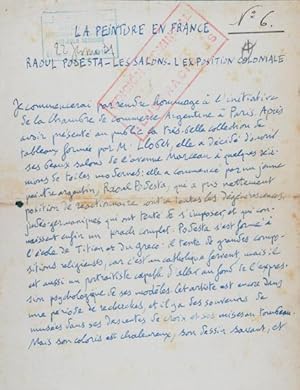 LA PEINTURE EN FRANCE
N° 6.
RAOUL PODESTA - LES SALONS. L'EXPOSITION COLONIALE
Je commencerai par rendre hommage à l'initiative
de la Chambre de commerce Argentine à Paris. Après
avoir présenté au public la très belle collection de
tableaux formée par M. Llobet, elle a décidé d'ouvrir
ses beaux salons de l'avenue Marceau à quelques
mons de toiles modernes: elle a commencé par un jeune
peintre argentin, Raoul Podesta, qui a pris nettement
position de réactionnaire contre toutes les dégénérescences
judéo germaniques qui ont tenté de s'imposer et qui
enfin un krach complet. Podesta s'est formé à
l'école de Titien et du Greco: il tente de grandes compo-
sitions religieuses, car c'est un catholique fervent, mais il
est aussi un portraitiste capable d'aller au fond de l'expres-
sion psychologique de ses modèles. Cet artiste est encore dans
une période de recherches et il y a des souvenirs de
musées dans ses descentes de croix et ses mises au tombeau.
Mais son coloris est chaleureux, son dessin savant, et